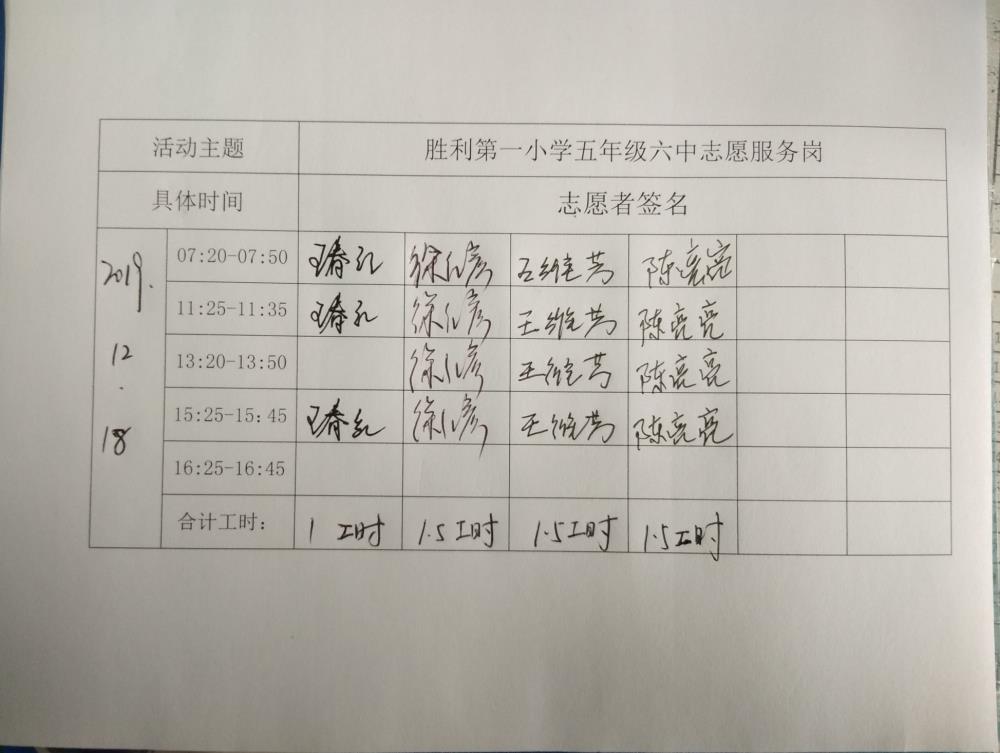 活动主题 胜利第一小学五年级六中志愿服务岗
具体时间 志愿者签名
2019.12.18
07:20-07:50 王春红 徐仁彦 王维芳 陈亮亮
11:25-11:35 王春红 徐仁彦 王维芳 陈亮亮
13:20-13:50 徐仁彦 王维芳 陈亮亮
15:25-15:45 王春红 徐仁彦 王维芳 陈亮亮
16:25-16:45
合计工时: 1工时 1.5工时 1.5工时 1.5工时